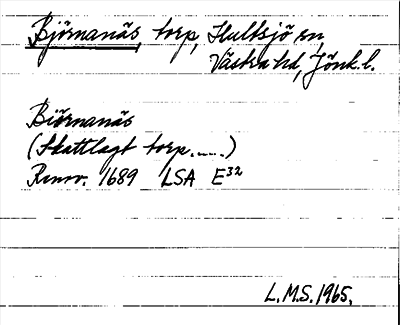 Björnanäs, torp, Hultsjö sn,
Västra hd, Jönk. l.
Biörnanäs
(Skattlagt torp.....)
Renov. 1689 LSA E32
L.M.S. 1965.